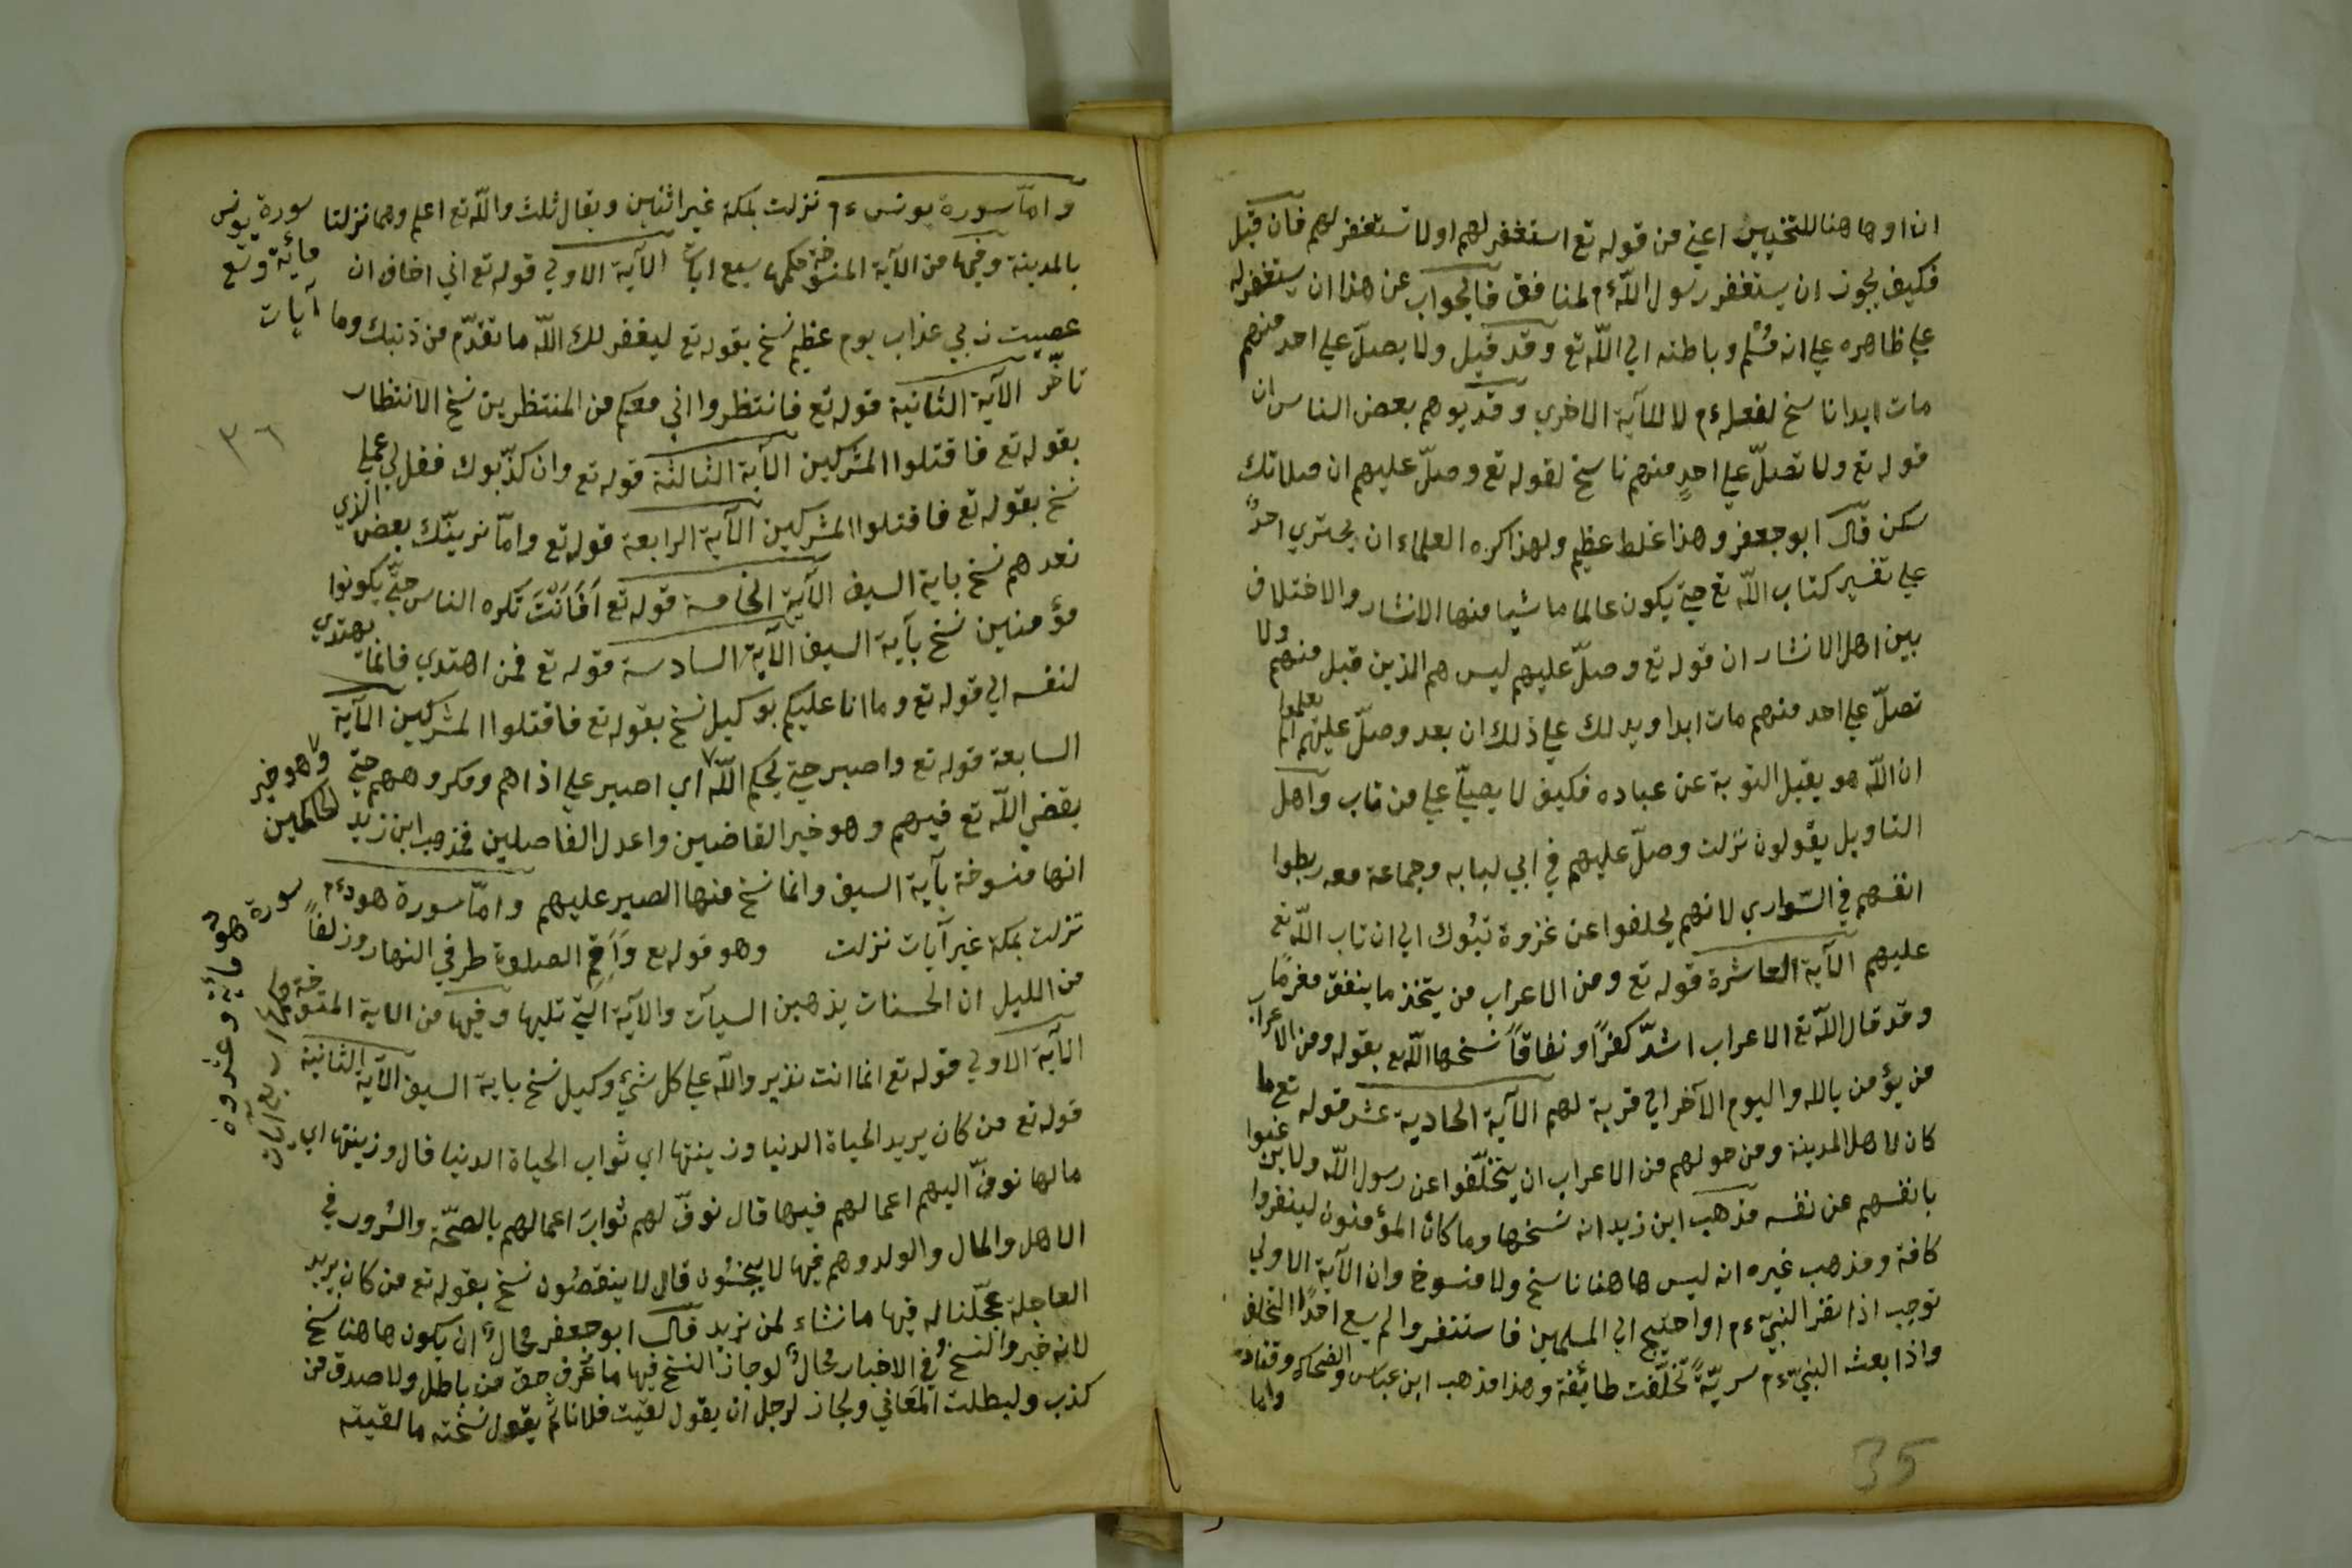 ان او ها هنا للتخيير اعني من قوله تع استغفر لهم او لا تستغفر لهم فان قيل
فكيف يجوز ان يستغفر رسول اللّه ءم لمنافق فالجواب عن هذا ان يستغفر له
علي ظاهره علي انه مُسْلم وباطنه الي اللّه تع وقد قيل ولا تصلّ علي احد منهم
مات ابدا ناسخ لفعله ءم لا للآية الاخري وقد يوهم بعض الناس ان
قوله تع ولا تصلّ علي احدٍ منهم ناسخ لقوله تع وصلّ عليهم ان صلاتك
سكن قال ابو جعفر وهذا غلط عظيم ولهذا كره العلماء ان يجتري احدٌ
علي تفسير كتاب اللّه تع حتي يكون عالما ما شيا منها الانشار والاختلاف
بين اهل الانشار ان قوله تع وصلّ عليهم ليس هم الذين قبل منهم ولا
تصلّ علي احد منهم مات ابدا ويدلك علي ذلك ان بعد وصلّ عليهم الم يعلموا
ان اللّه هو يقبل التوبة عن عباده فكيف لا يصلّي علي من تاب واهل
التاويل يقولون نزلت وصلّ عليهم في ابي لبابه وجماعة معه ربطوا
انفسهم في السّواري لانهم يحلفوا عن غزوة تبُوك الي ان تاب اللّه تع
عليهم الآية العاشرة قوله تع ومن الاعراب من يتخذ ما ينفق مغرمًا
وقد قال اللّه تع الاعراب اشدّ كفرًا ونفاقاً نسخها اللّه تع بقوله ومن الاعراب
من يؤمن بالله واليوم الآخر الي قربة لهم الآية الحادية عشر قوله تع ما
كان لاهل المدينة ومن حولهم من الاعراب ان يتخلّفوا عن رسول اللّه ولا يرغبوا
بانفسهم عن نفسه مذهب ابن زيد انه نسخها وما كان المؤمنون لينفروا
كافة ومذهب غيره انه ليس ها هنا ناسخ ولا منسوخ وان الآية الاولي
توجب اذا نفر النبيّ ءم او احتيج الي المسلمين فاستنفروا لم يسع احدًا التخلف
واذا بعث النبيّ ءم سريّةً تخلّفت طائفة وهذا مذهب ابن عباس والضحاك وقتاده
واما
35
واما سورة يونس ءم نزلت بمكة غير اثنين ويقال ثلث واللّه تع اعلم وهما نزلتا
بالمدينة وفيها من الآية المنسوخة حكمها سبع ايات الآية الاولي قوله تع اني اخاف ان
عصيت ربي عذاب يوم عظيم نسخ بقوله تع ليغفر لك اللّه ما تقدّم من ذنبك وما
تاخّر الآية الثانية قوله تع فانتظروا اني معكم من المنتظرين نسخ الانتظار
بقوله تع فاقتلوا المشركين الآية الثالثة قوله تع وان كذّبوك فقل لي عملي
نسخ بقوله تع فاقتلوا المشركين الآية الرابعة قوله تع وامّا نرينّك بعض الذي
نعدهم نسخ باية السيف الآية الخامسة قوله تع اَفَاَنْتَ تكره الناس حتّي يكونوا
مؤمنين نسخ بآية السيف الآية السادسة قوله تع فمن اهتدي فانما يهتدي
لنفسه الي قوله تع وما انا عليكم بوكيل نسخ بقوله تع فاقتلوا المشركين الآية
السابعة قوله تع واصبر حتي يحكم اللّه اي اصبر علي اذاهم ومكروههم حتي
يقضي اللّه تع فيهم وهو خير القاضين واعدل الفاصلين فمذهب ابن زيد
انها منسوخة بآية السيف وانما نسخ منها الصبر عليهم وامّا سورة هود ءم
نزلت بمكة غير آيات نزلت وهو قوله تع وَاَقِمِ الصلوة طرفي النهار وزلفاً
من الليل ان الحسنات يذهبن السيآت والآية التي تليها وفيها من الاية المنسوخة
حكمها اربع آيات
الآية الاولي قوله تع انما انت نذير واللّه علي كل شيْ وكيل نسخ باية السيف الآية الثانية
قوله تع من كان يريد الحياة الدنيا وزينتها اي ثواب الحياة الدنيا قال وزينتها اي
مالها نوفّ اليهم اعمالهم فيها قال نوفّ لهم ثواب اعمالهم بالصحّة والسُرور في
الاهل والمال والولد وهم فيها لا يبخسُون قال لا ينقصُون نسخ بقوله تع من كان يريد
العاجلة عجّلنا له فيها ما نشاء لمن نريد قال ابو جعفر محالٌ ان يكون ها هنا نسخ
لانه خبر والنسخ في الاخبار محالٌ لو جاز النسخ فيها ما عُرف حق من باطل ولا صدق من
كذب ولبطلت المعَاني ولجاز لرجل ان يقول لقيت فلانا ثمّ يقول نسخته ما لقيته
سورة يونس
مائة وتسع
آيات
٣٦
وهو خير
الحاكمين
سورة هود مائة وعشرون